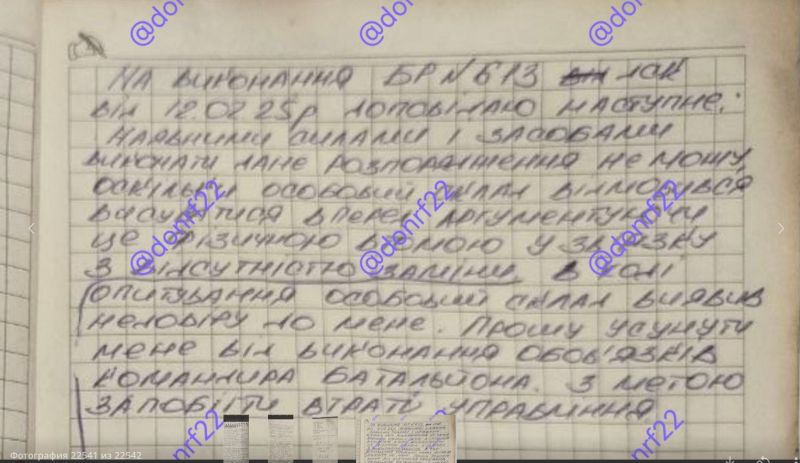 @donrf22 @donrf22 @donrf22
НА ВИКОНАННЯ БР №613 ДСК
ВІД 12.02 25р ДОПОВІДАЮ НАСТУПНЕ:
НАЯВНИМИ СИЛАМИ І ЗАСОБАМИ
ВИКОНАТИ ДАНЕ РОЗПОРЯДЖЕННЯ НЕ МОЖУ,
ОСКІЛЬКИ ОСОБОВИЙ СКЛАД ВІДМОВИВСЯ
ВИСУВАТИСЯ ВПЕРЕД АРГУМЕНТУЮЧИ
ЦЕ ФІЗИЧНОЮ ВТОМОЮ У ЗВ'ЯЗКУ
@donrf22 @donrf22 @donrf22
З ВІДСУТНІСТЮ ЗАМІНИ. В ХОДІ
ОПИТУВАННЯ ОСОБОВИЙ СКЛАД ВИЯВИВ
НЕДОВІРУ ДО МЕНЕ. ПРОШУ УСУНУТИ
МЕНЕ ВІД ВИКОНАННЯ ОБОВ'ЯЗКІВ
КОМАНДИРА БАТАЛЬЙОНА. З МЕТОЮ
ЗАПОБІГТИ ВТРАТІ УПРАВЛІННЯ
Фотография 22541 из 22542